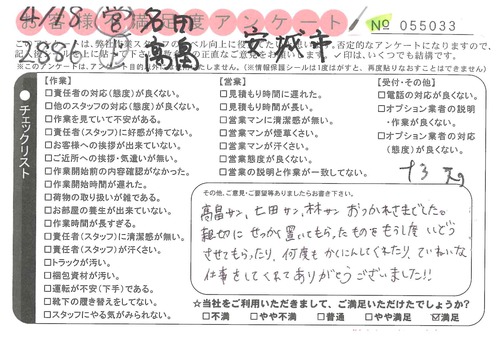 4/18 営 名田
お客様満足度アンケート
№ 055033
2886 高畠 安城市
※このアンケートは、アンケート目的以外には使用いたしません。(※情報保護シールは1度はがすと、再度貼りなおすことはできません)
チェックリスト
【作業】
□責任者の対応(態度)が良くない。
□他のスタッフの対応(態度)が良くない。
□作業を見ていて不安がある。
□責任者(スタッフ)に好感が持てない。
□お客様への挨拶が出来ていない。
□ご近所への挨拶・気遣いが無い。
□作業開始前の内容確認がなかった。
□作業開始時間が遅れた。
□荷物の取り扱いが雑である。
□お部屋の養生が出来ていない。
□作業時間が長すぎる。
□責任者(スタッフ)に清潔感が無い。
□責任者(スタッフ)が汗くさい。
□トラックが汚い。
□梱包資材が汚い。
□運転が不安(下手)である。
□靴下の履き替えをしてない。
□スタッフにやる気がみられない。
【営業】
□見積もり時間に遅れた。
□見積もり時間が長い。
□営業マンに清潔感が無い。
□営業マンが煙草くさい。
□営業マンが汗くさい。
□営業態度が良くない。
□営業の説明と作業が一致してない。
【受付・その他】
□電話の対応が良くない。
□オプション業者の説明
・作業が良くない。
□オプション業者の対応
(態度)が良くない。
その他、ご意見・ご要望等ありましたらお書き下さい。
高畠サン、七田サン、林サン おつかれさまでした。
親切に せっかく置いてもらったものを もう1度 いどう
させてもらったり、何度も かくにんしてくれたり、ていねいな
仕事をしてくれて ありがとうございました!!
☆当社をご利用いただきまして、ご満足いただけたでしょうか?
□不満 □やや不満 □普通 □やや満足 ☑満足